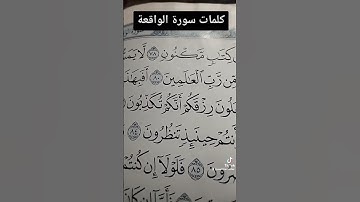 كلمات سورة الواقعة
كِتَٰبٍ مَّكْنُونٍ ٧٨ لَّا يَمَسُّ
مِّن رَّبِّ ٱلْعَٰلَمِينَ ٨٠ أَفَبِهَٰذَ
لُونَ رِزْقَكُمْ أَنَّكُمْ تُكَذِّبُونَ
أَنتُمْ حِينَئِذٍ تَنظُرُونَ ٨٤
صِرُونَ ٨٥ فَلَوْلَآ إِن كُنتُمْ
إِن كَانَ